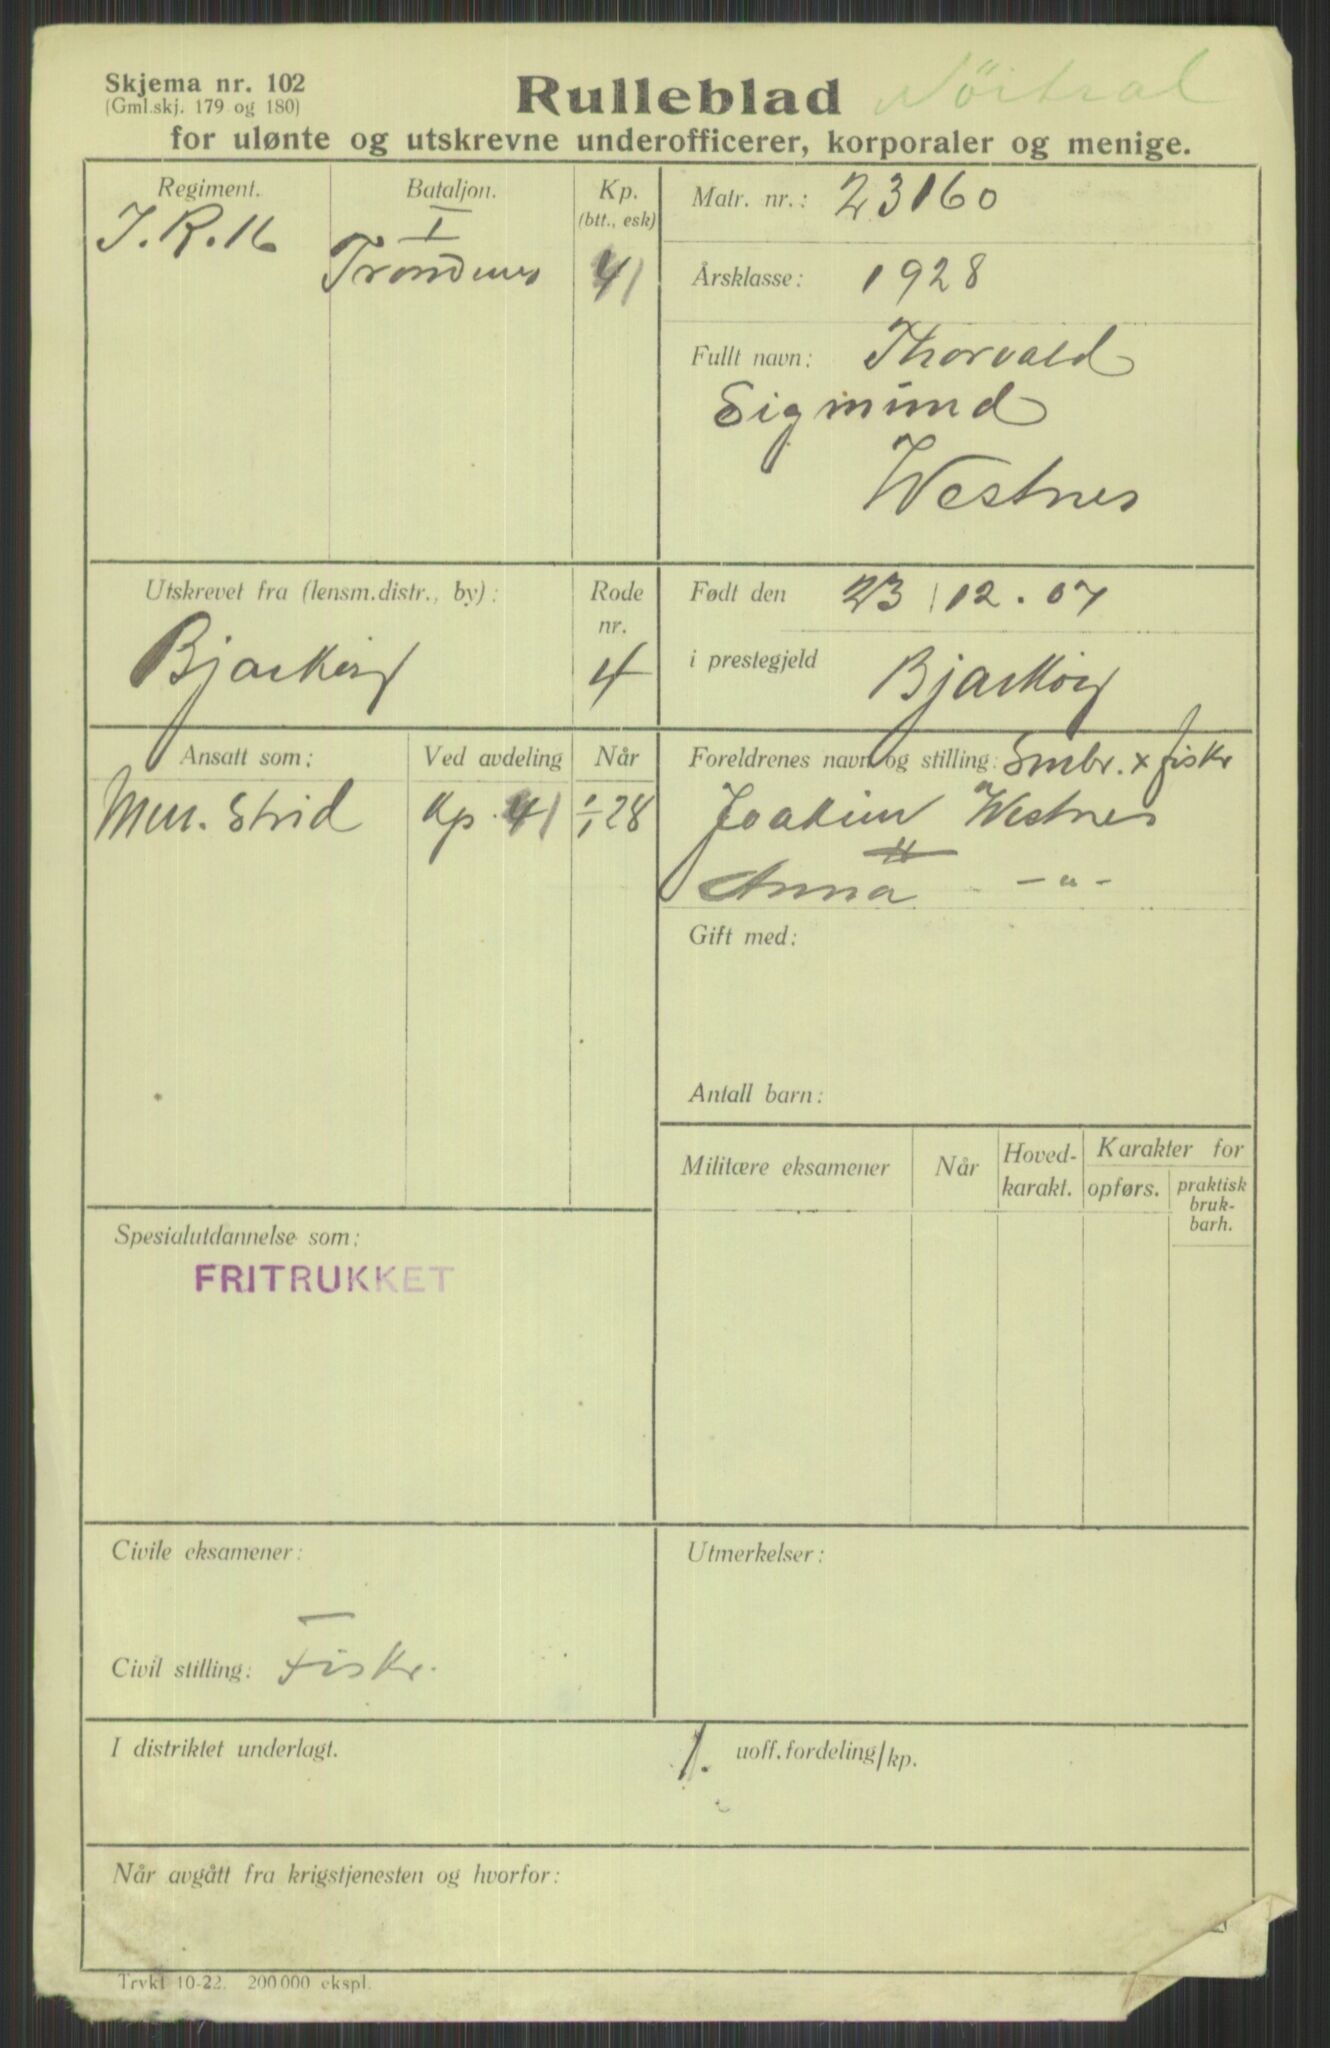 Skjema nr. 102
(Gml.skj. 179 og 180)
Rulleblad
Nöitral
for ulønte og utskrevne underofficerer, korporaler og menige.
Regiment.
I.R.16
Bataljon.
I
Trondenes
Kp.
(btt., esk)
41
Matr. nr.: 23160
Årsklasse: 1928
Fullt navn: Thorvald
Sigmund
Westnes
Utskrevet fra (lensm.distr., by):
Bjarköy
Rode
nr.
4
Født den 23/12.07
i prestegjeld Bjarköy
Ansatt som:
Men. Strid
Ved avdeling
Kp. 41
Når
1/1 28
Foreldrenes navn og stilling: Smbr. x fiskr
Joakim Westnes
Anna -"-
Gift med:
Antall barn:
Militære eksamener
Når
Hoved-
karakt.
Karakter for
opførs.
praktisk
bruk-
barh.
Spesialutdannelse som:
FRITRUKKET
Civile eksamener:
—
Civil stilling: Fiskr.
Utmerkelser:
I distriktet underlagt.
1. uoff. fordeling/kp.
Når avgått fra krigstjenesten og hvorfor:
Trykt 10-22. 200 000 ekspl.